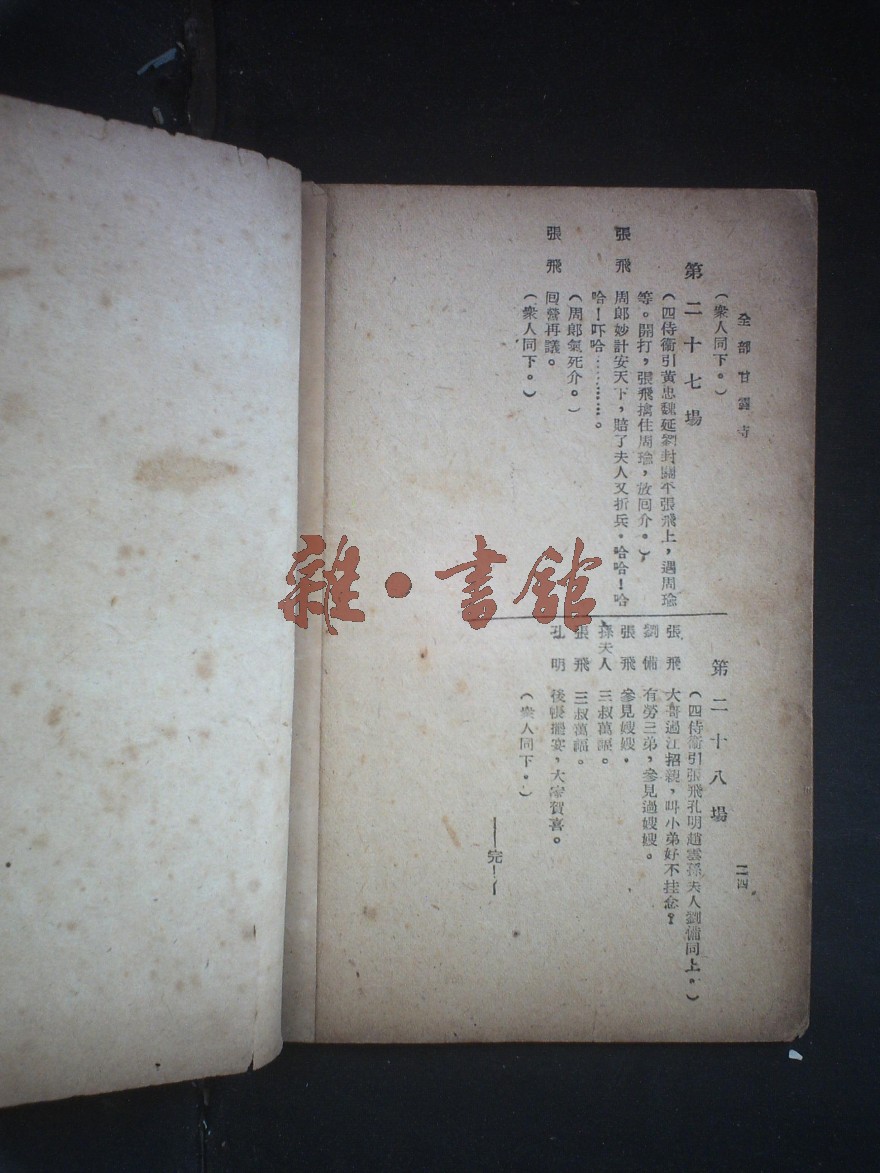 全部甘露寺
（衆人同下。）
第二十七場
（四侍衛引黃忠魏延劉封關平張飛上，遇周瑜
等。開打，張飛擒住周瑜，放回介。）
張飛　周郎妙計安天下，賠了夫人又折兵。哈哈！哈
哈！吓哈…………。
（周郎氣死介。）
張飛　回營再議。
（衆人同下。）
第二十八場
（四侍衛引張飛孔明趙雲孫夫人劉備同上。）
張飛　大哥過江招親，叫小弟好不挂念？
劉備　有勞三弟，參見過嫂嫂。
張飛　參見嫂嫂。
孫夫人　三叔萬福。
張飛　三叔萬福。
孔明　後帳擺宴，大家賀喜。
（衆人同下。）
——完！——
二四
雜·書館